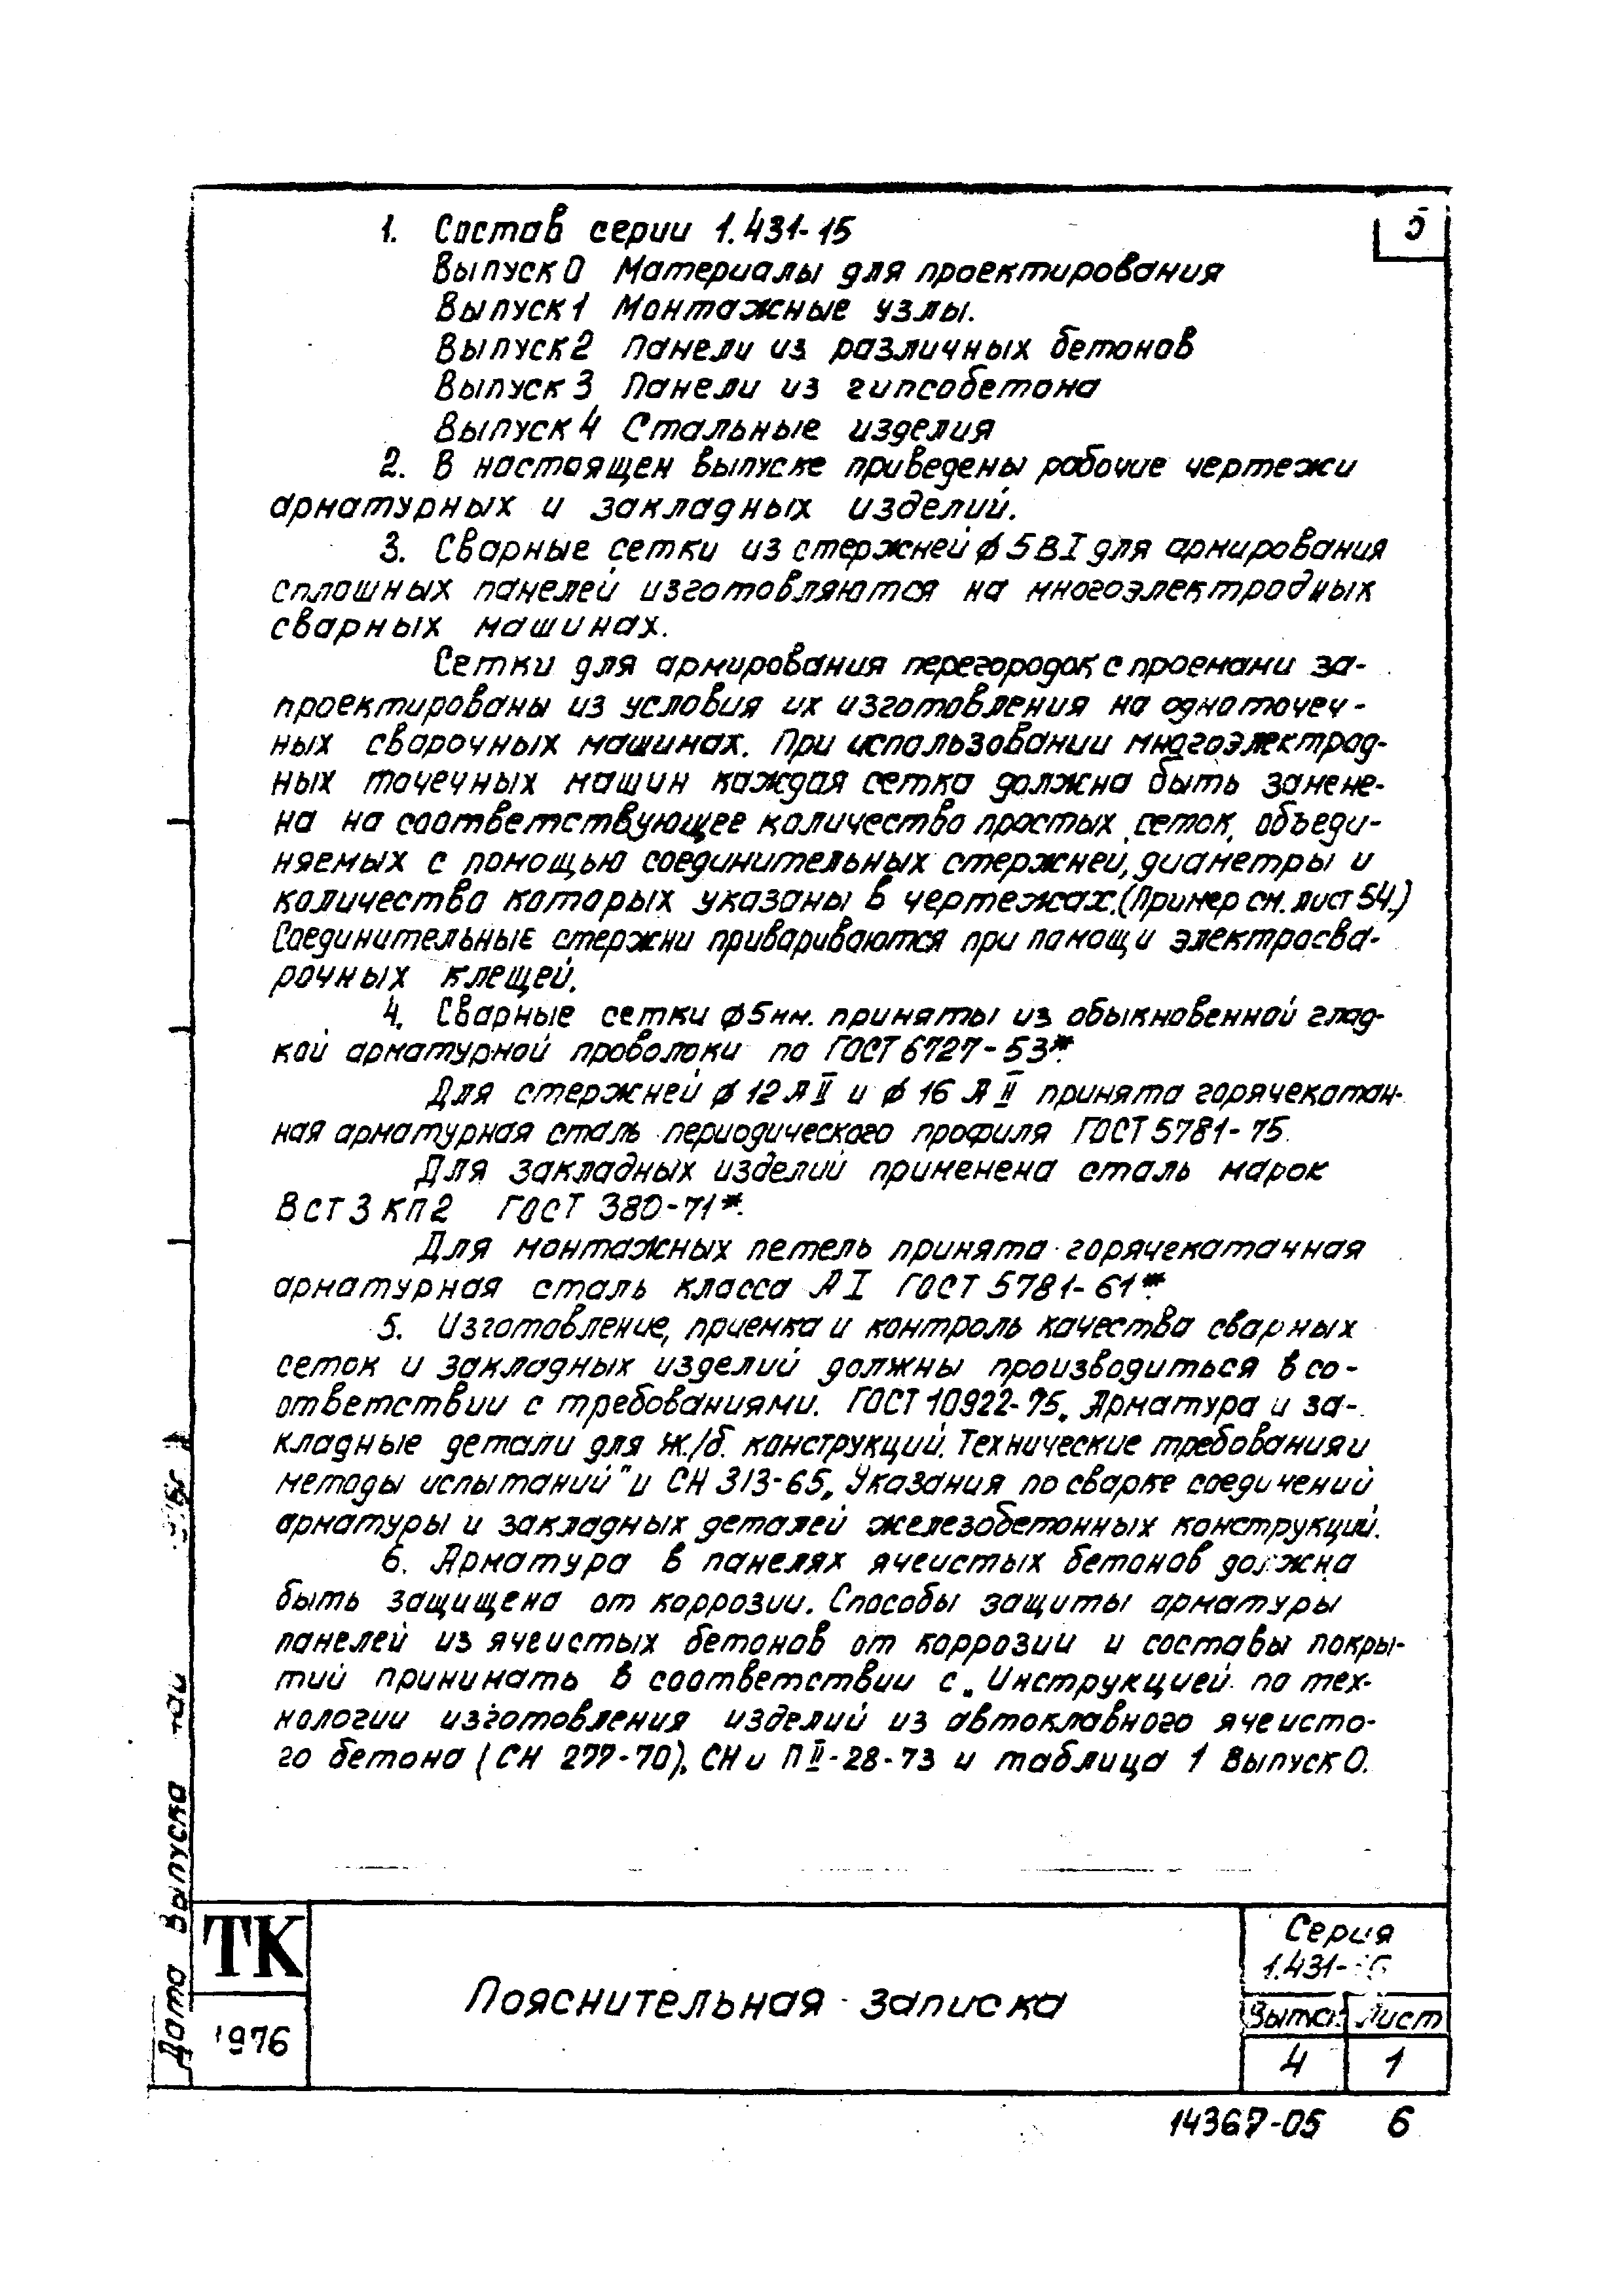 5
1. Состав серии 1.431-15
Выпуск 0 Материалы для проектирования
Выпуск 1 Монтажные узлы.
Выпуск 2 Панели из различных бетонов
Выпуск 3 Панели из гипсобетона
Выпуск 4 Стальные изделия
2. В настоящем выпуске приведены рабочие чертежи
арматурных и закладных изделий.
3. Сварные сетки из стержней ϕ 5 В I для армирования
сплошных панелей изготовляются на многоэлектродных
сварных машинах.
Сетки для армирования перегородок с проемами за-
проектированы из условия их изготовления на одноточеч-
ных сварочных машинах. При использовании многоэлектрод-
ных точечных машин каждая сетка должна быть замене-
на на соответствующее количество простых сеток, объеди-
няемых с помощью соединительных стержней, диаметры и
количества которых указаны в чертежах. (Пример см. лист 54.)
Соединительные стержни привариваются при помощи электросва-
рочных клещей.
4. Сварные сетки ϕ5мм. приняты из обыкновенной глад-
кой арматурной проволоки по ГОСТ 6727-53*.
Для стержней ϕ 12 А II и ϕ 16 А II принята горячекатан-
ная арматурная сталь периодического профиля ГОСТ 5781-75.
Для закладных изделий применена сталь марок
В СТ 3 КП 2 ГОСТ 380-71*.
Для монтажных петель принята горячекатачная
арматурная сталь класса А I ГОСТ 5781-61*.
5. Изготовление, приемка и контроль качества сварных
сеток и закладных изделий должны производиться в со-
ответствии с требованиями. ГОСТ 10922-75 „Арматура и за-
кладные детали для ж./б. конструкций. Технические требования и
методы испытаний" и СН 313-65 „Указания по сварке соединений
арматуры и закладных деталей железобетонных конструкций.
6. Арматура в панелях ячеистых бетонов должна
быть защищена от коррозии. Способы защиты арматуры
панелей из ячеистых бетонов от коррозии и составы покры-
тий принимать в соответствии с „Инструкцией по тех-
нологии изготовления изделий из автоклавного ячеисто-
го бетона (СН 277-70), СН и П II-28-73 и таблица 1 Выпуск 0.
Дата выпуска
ТК
1976
Пояснительная записка
Серия
1.431-
Лист
4 1
14367-05 6